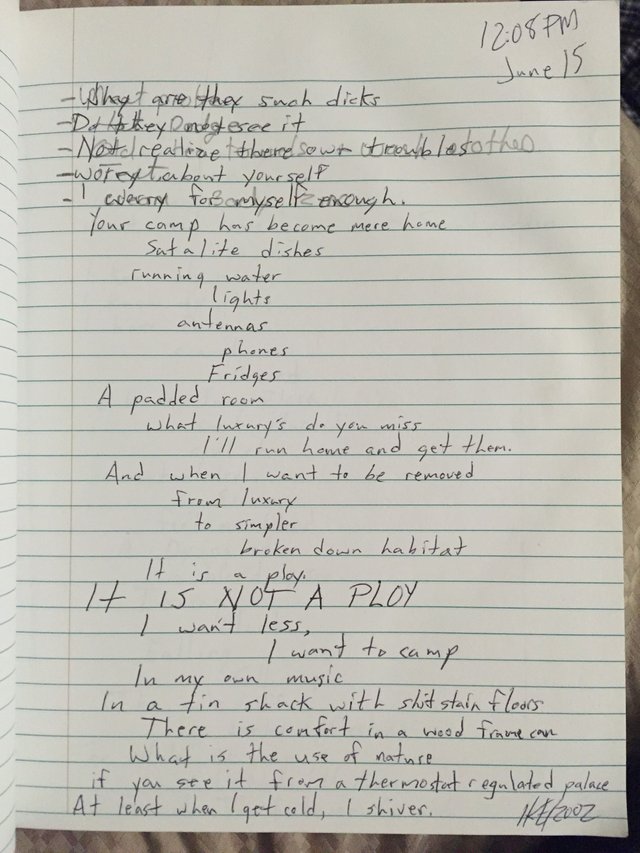 12:08 PM
June 15
- Why are they such dicks
- Do they see it
- Not realize there own troubles
- worry about yourself
- I worry for myself enough.
Your camp has become mere home
Satalite dishes
running water
lights
antennas
phones
Fridges
A padded room
what luxury's do you miss
I'll run home and get them.
And when I want to be removed
from luxury
to simpler
broken down habitat
It is a ploy.
It IS NOT A PLOY
I wan't less,
I want to camp
In my own music
In a tin shack with shit stain floors
There is comfort in a wood frame can
What is the use of nature
if you see it from a thermostat regulated palace
At least when I get cold, I shiver.